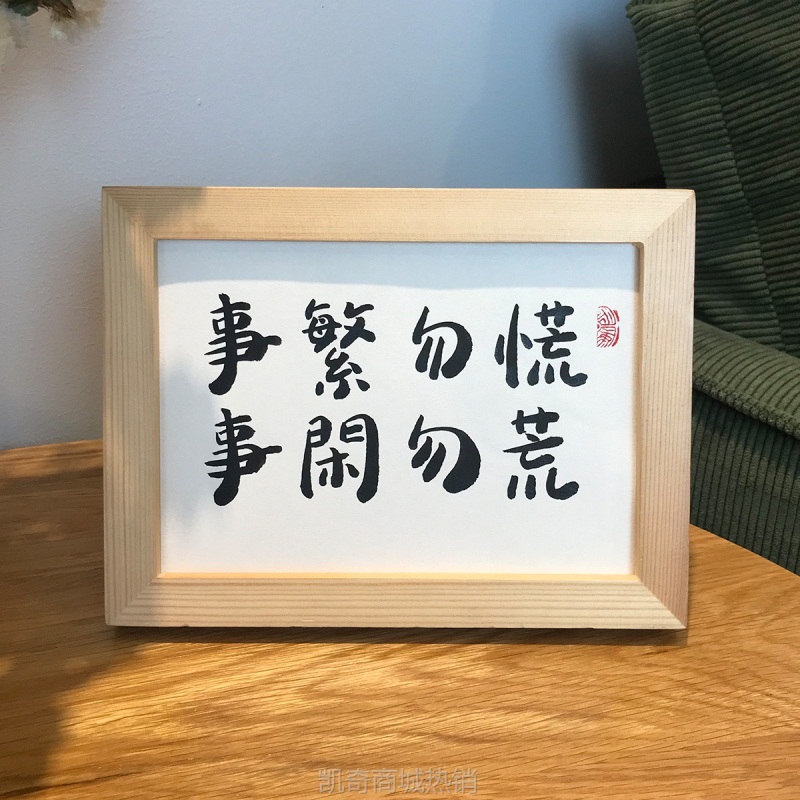 事繁勿慌
事閑勿荒
凯奇商城热销